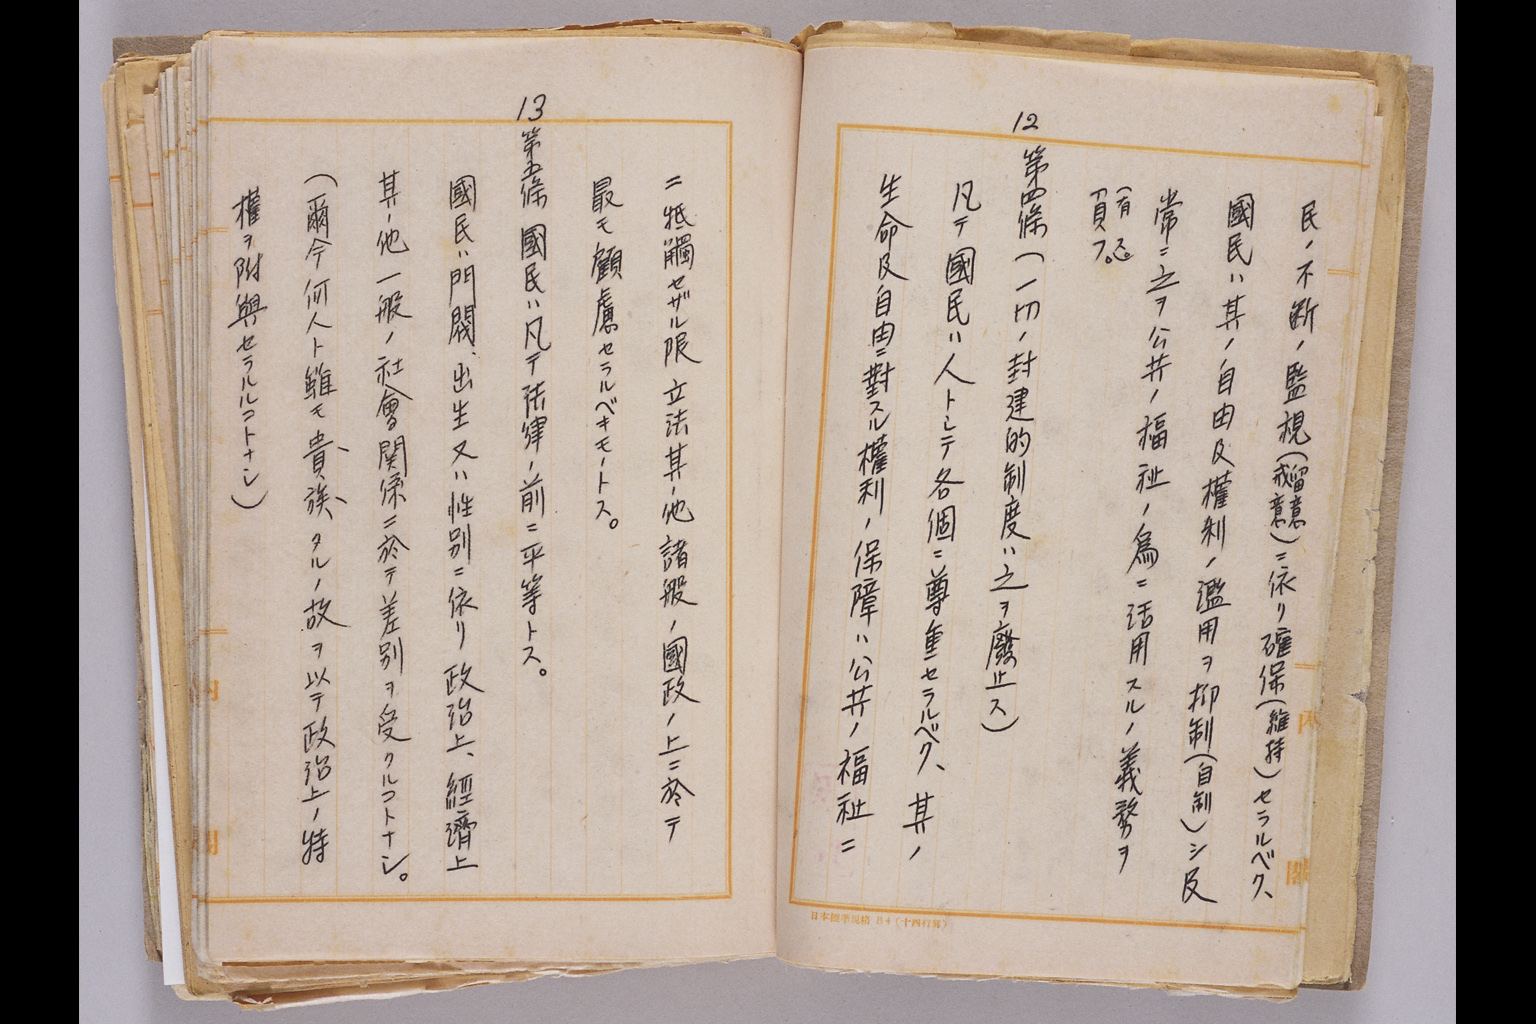 民ノ不断ノ監視(留意戒意)ニ依リ確保(維持)セラルベク、
國民ハ其ノ自由及權利ノ濫用ヲ抑制(自制)シ及
常ニ之ヲ公共ノ福祉ノ爲ニ活用スルノ義務ヲ
(有ス)
負フ。
12
第四條(一切ノ封建的制度ハ之ヲ廢止ス)
凡テ國民ハ人トシテ各個ニ尊重セラルベク、其ノ
生命及自由ニ對スル權利ノ保障ハ公共ノ福祉ニ
日本標準規格 B4(十四行罫)
ニ牴觸セザル限立法其ノ他諸般ノ國政ノ上ニ於テ
最モ顧慮セラルベキモノトス。
13
第五條國民ハ凡テ法律ノ前ニ平等トス。
國民ハ門閥、出生又ハ性別ニ依リ政治上、經濟上
其ノ他一般ノ社會関係ニ於テ差別ヲ受クルコトナシ。
(爾今何人ト雖モ貴族タルノ故ヲ以テ政治上ノ特
權ヲ附與セラルルコトナシ)
内
閣